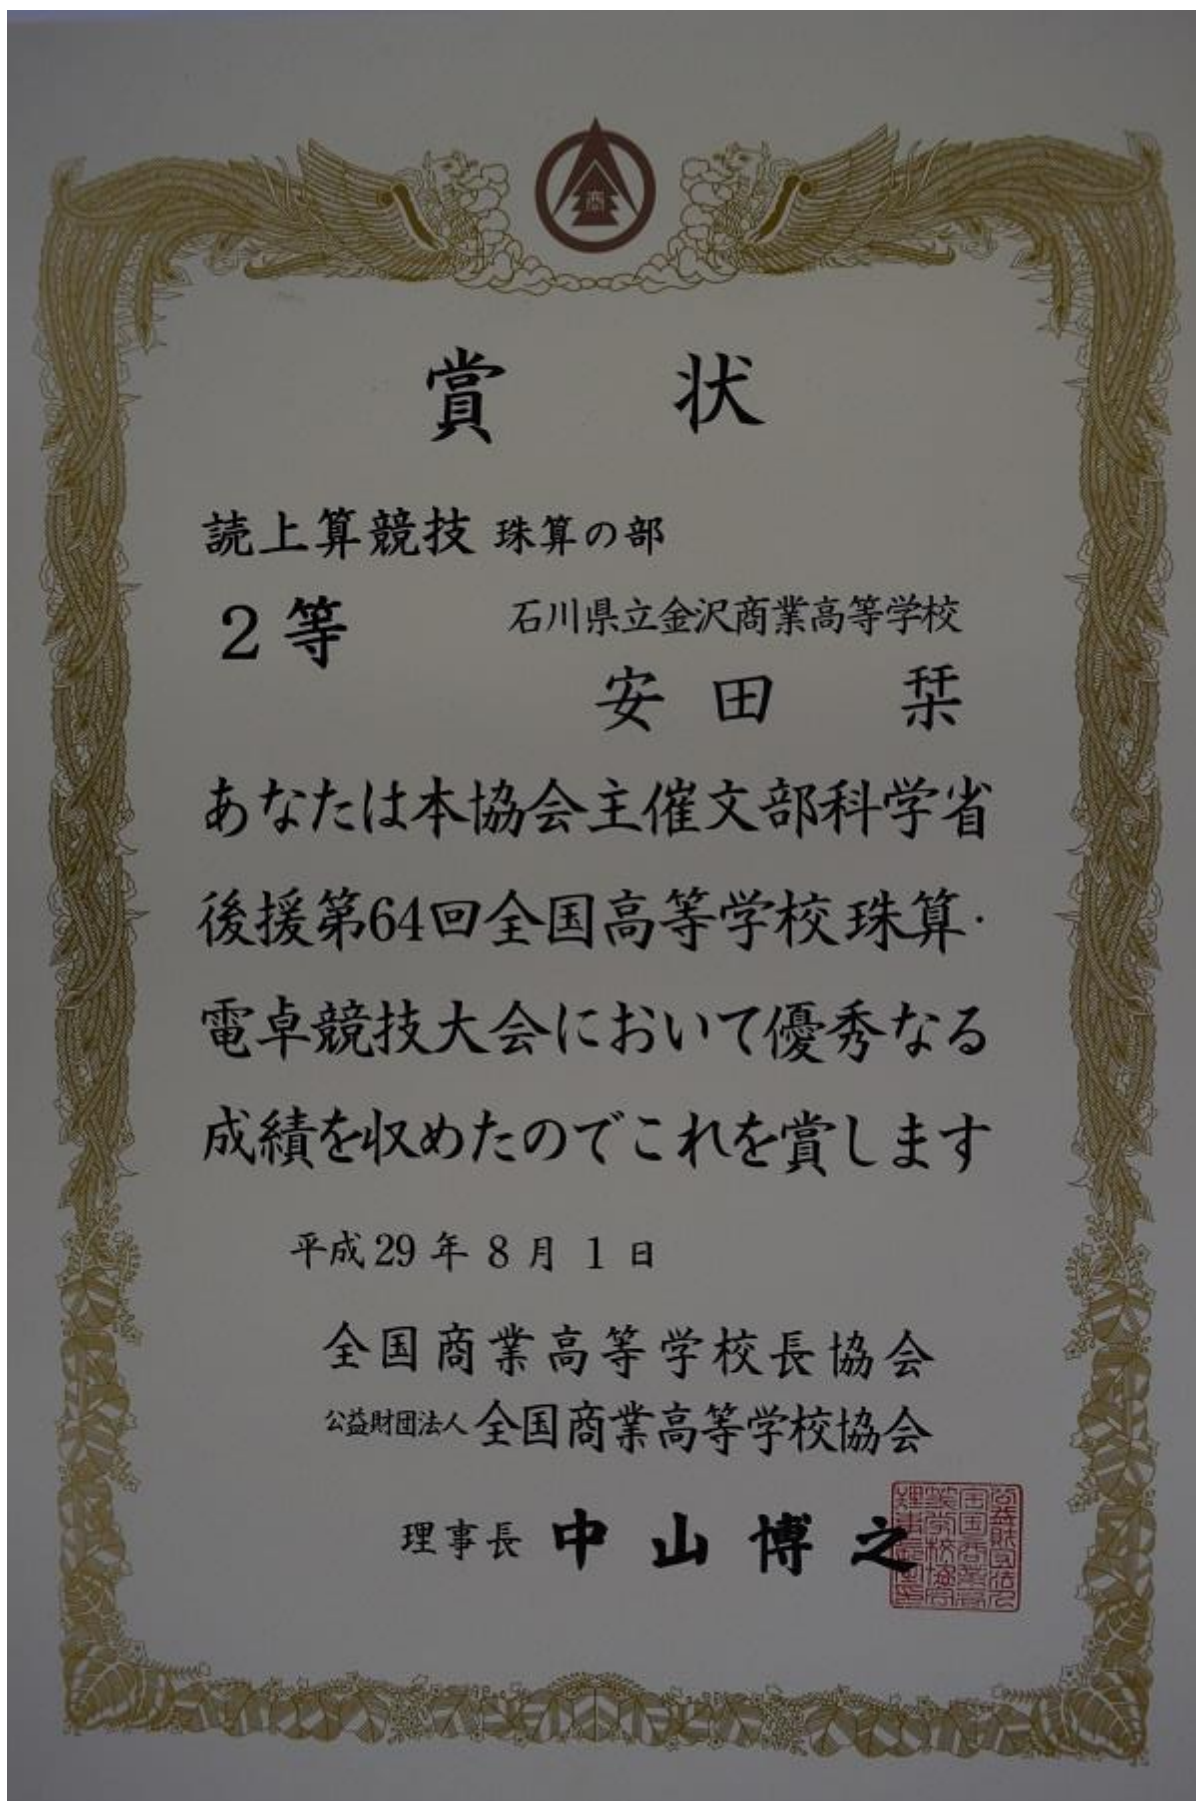 商
賞状
読上算競技 珠算の部
2等 石川県立金沢商業高等学校
安田 栞
あなたは本協会主催文部科学省
後援第64回全国高等学校珠算・
電卓競技大会において優秀なる
成績を収めたのでこれを賞します
平成29年8月1日
全国商業高等学校長協会
公益財団法人 全国商業高等学校協会
理事長 中山博之